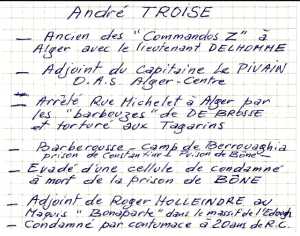 André TROISE
— Ancien des "Commandos Z" à
Alger avec le lieutenant DELHOMME
— Adjoint du Capitaine Le PIVAIN
O.A.S Alger-Centre
— Arrêté Rue Michelet à Alger par
les "barbouzes" de DE BROSSE
et torturé aux Tagarins
— Barberousse - Camp de Berrouaghia
prison de Constantine & Prison de Bône -
— Evadé d'une cellule de condamné
à mort de la prison de BÔNE
— Adjoint de Roger HOLLEINDRE au
Maquis "Bonaparte" dans le massif de l'Edough
— Condamné par contumace à 20 ans de R.C.